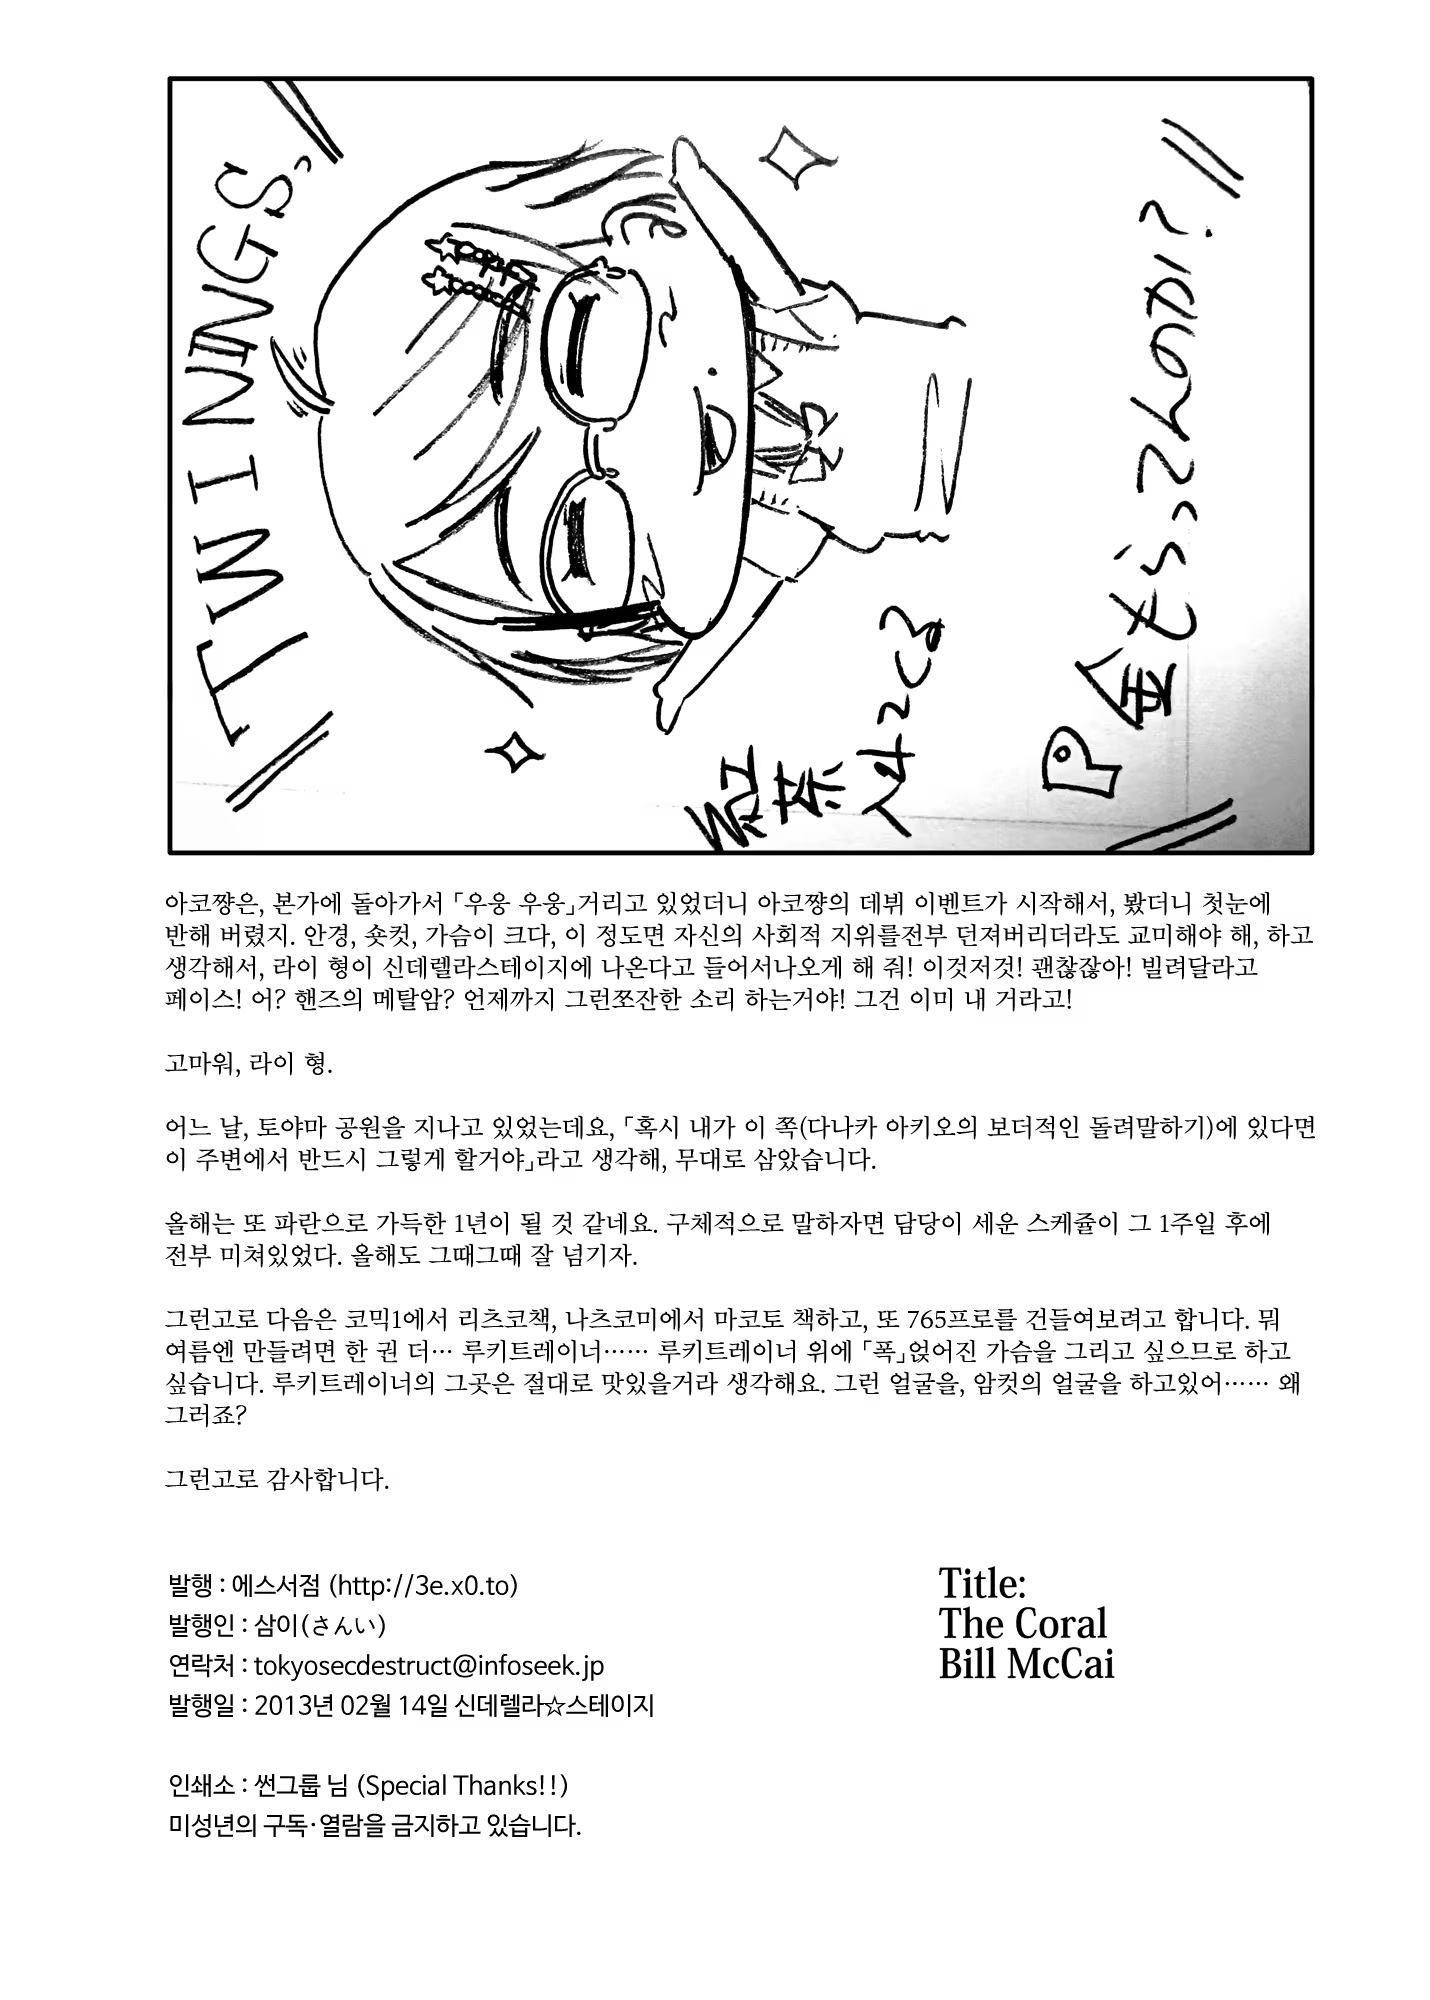 TWININGS.っ
紅茶
P金もらってんのか?
아코쨩은, 본가에 돌아가서 「우웅 우웅」거리고 있었더니 아코쨩의 데뷔 이벤트가 시작해서, 봤더니 첫눈에
반해 버렸지. 안경, 숏컷, 가슴이 크다, 이 정도면 자신의 사회적 지위를전부 던져버리더라도 교미해야 해, 하고
생각해서, 라이 형이 신데렐라스테이지에 나온다고 들어서나오게 해 줘! 이것저것! 괜찮잖아! 빌려달라고
페이스! 어? 핸즈의 메탈암? 언제까지 그런쪼잔한 소리 하는거야! 그건 이미 내 거라고!
고마워, 라이 형.
어느 날, 토야마 공원을 지나고 있었는데요, 「혹시 내가 이 쪽(다나카 아키오의 보더적인 돌려말하기)에 있다면
이 주변에서 반드시 그렇게 할거야」라고 생각해, 무대로 삼았습니다.
올해는 또 파란으로 가득한 1년이 될 것 같네요. 구체적으로 말하자면 담당이 세운 스케쥴이 그 1주일 후에
전부 미쳐있었다. 올해도 그때그때 잘 넘기자.
그런고로 다음은 코믹1에서 리츠코책, 나츠코미에서 마코토 책하고, 또 765프로를 건들여보려고 합니다. 뭐
여름엔 만들려면 한 권 더… 루키트레이너…… 루키트레이너 위에 「폭」얹어진 가슴을 그리고 싶으므로 하고
싶습니다. 루키트레이너의 그곳은 절대로 맛있을거라 생각해요. 그런 얼굴을, 암컷의 얼굴을 하고있어…… 왜
그러죠?
그런고로 감사합니다.
발행 : 에스서점 (http://3e.x0.to)
발행인 : 삼이(さんい)
연락처 : tokyosecdestruct@infoseek.jp
발행일 : 2013년 02월 14일 신데렐라☆스테이지
인쇄소 : 썬그룹 님 (Special Thanks!!)
미성년의 구독·열람을 금지하고 있습니다.
Title:
The Coral
Bill McCai